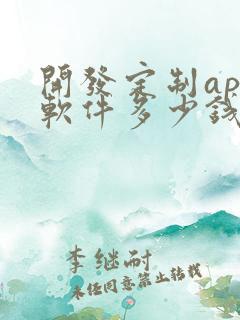 開發定制ap
軟件多少錢
李继耐
未经同意禁止转载